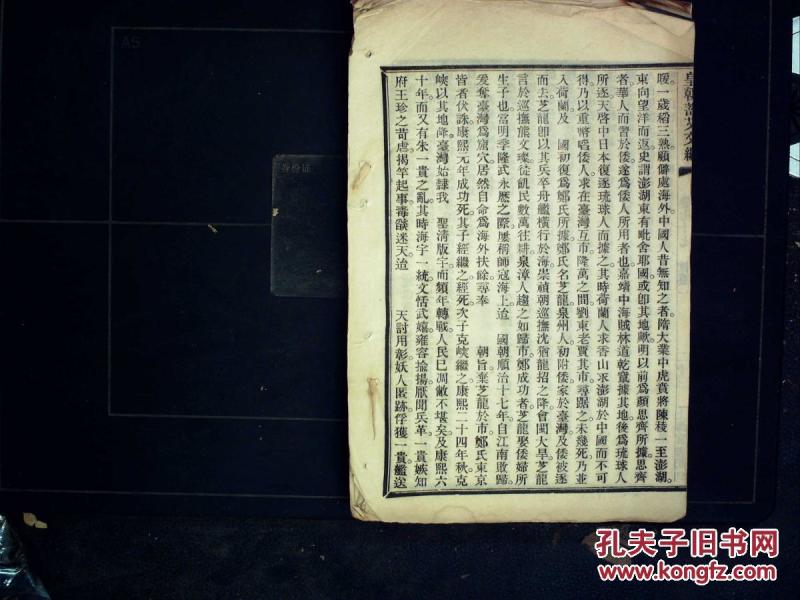 皇朝
暖一歲稻三熟顧僻處海外中國人昔無知之者隋大業中虎賁將陳稜一至澎湖
東向望洋而返史謂澎湖東有毗舍耶國或卽其地歟明以前爲顏思齊所據思齊
者華人而習於倭遂爲倭人所用者也嘉靖中海賊林道乾竄據其地後爲琉球人
所逐天啓中日本復逐琉球人而據之其時荷蘭人求香山求澎湖於中國而不可
得乃以重幣啗倭人求在臺灣互市隆萬之間劉東老賈其市尋踞之未幾死乃並
入荷蘭及 國初復爲鄭氏所據鄭氏名芝龍泉州人初附倭家於臺灣及倭被逐
而去芝龍卽以其兵卒舟艦橫行於海崇禎朝巡撫沈猶龍招之降會閩大旱芝龍
言於巡撫熊文璨徒飢民數萬往耕泉漳人趨之如歸市鄭成功者芝龍娶倭婦所
生子也當明季隆武永曆之際屢稱師寇海上迨 國朝順治十七年自江南敗歸
爰奪臺灣爲窟穴居然自命爲海外扶餘尋奉 朝旨棄芝龍於市鄭氏東京
皆者伏誅康熙元年成功死其子經繼之經死次子克㙇繼之康熙二十四年秋克
㙇以其地降臺灣始隸我 聖清版宇而頻年轉戰人民已凋敝不堪矣及康熙六
十年而又有朱一貴之亂其時海宇一統文恬武嬉雍容揄揚厭聞兵革一貴嫉知
府王珍之苛虐揭竿起事毒燄迷天迨 天討用彰妖人匿跡俘獲一貴艦送
孔夫子旧书网
kongfz.com